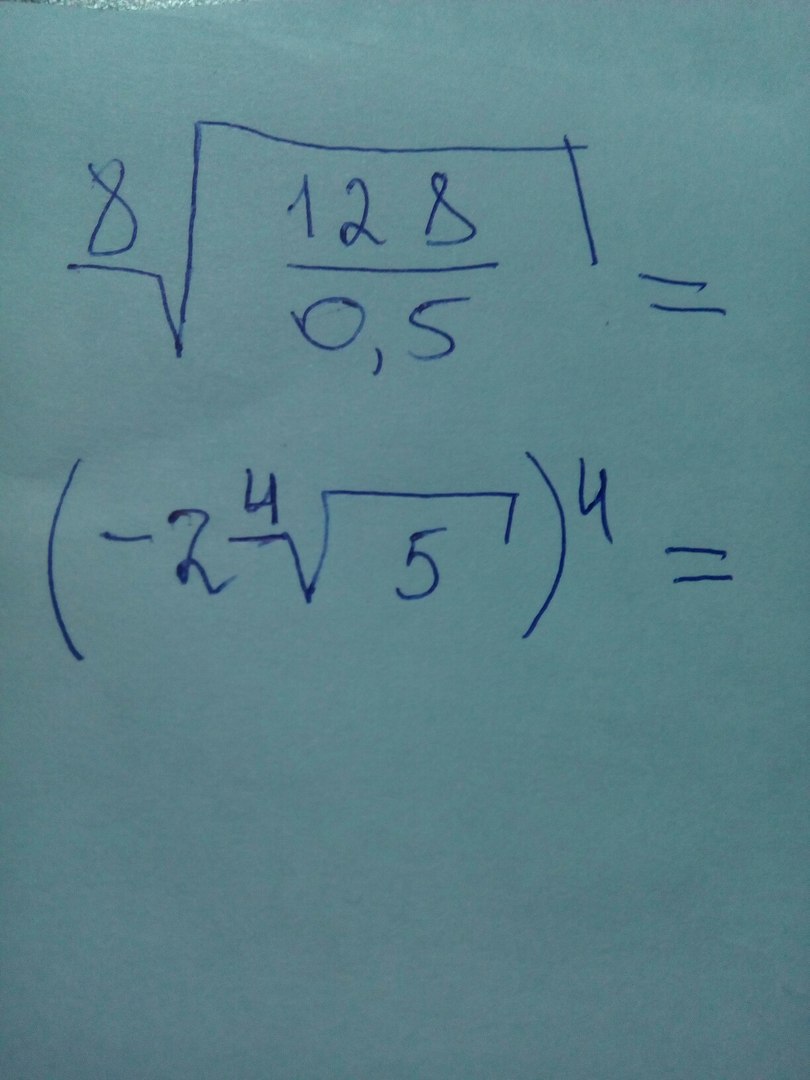 \sqrt[8]{\frac{128}{0,5}} =
(-2\sqrt[4]{5})^4 =